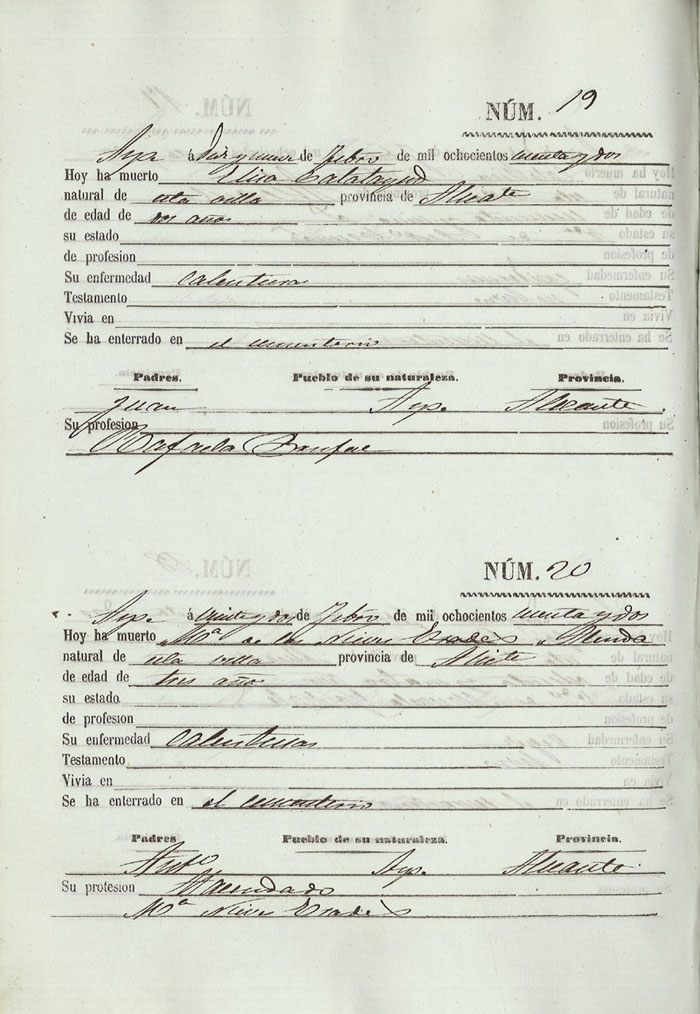 NÚM. 19
á diez y nueve de Febro de mil ochocientos cincuenta y dos
Hoy ha muerto Elisa Calatayud
natural de esta villa provincia de Alicante
de edad de dos años
su estado
de profesion
Su enfermedad Calentura
Testamento
Vivia en
Se ha enterrado en el cementerio
Padres. Pueblo de su naturaleza. Provincia.
Juan Alicante.
Su profesion
Rafaela
NÚM. 20
á veinte y dos de Febro de mil ochocientos cincuenta y dos
Hoy ha muerto Mª de las Nieves
natural de esta villa provincia de Alicte
de edad de tres años
su estado
de profesion
Su enfermedad Calenturas
Testamento
Vivia en
Se ha enterrado en el cementerio
Padres Pueblo de su naturaleza. Provincia.
Alicante.
Su profesion Hacendado
Mª Nieves